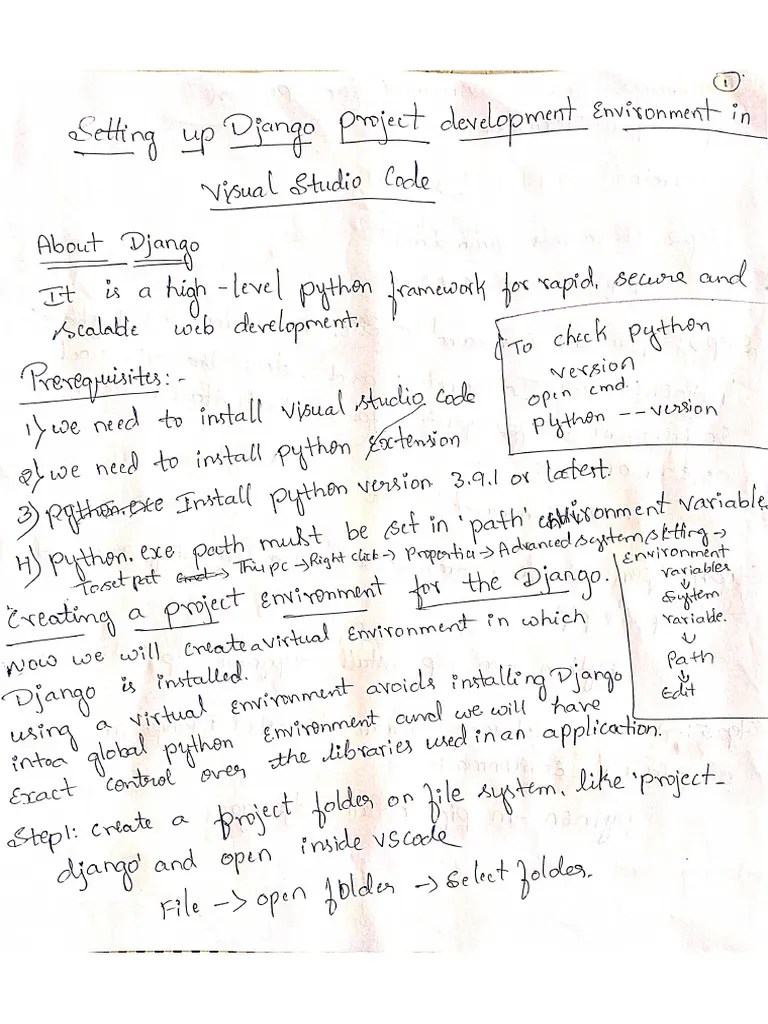 1
Setting up Django Project development Environment in
Visual Studio Code
About Django
It is a high-level python framework for rapid, secure and
scalable web development.
To check python
version
open cmd.
python --version
Prerequisites:-
1) we need to install Visual studio code
2) we need to install python Extension
3) python.exe Install python version 3.9.1 or latest.
4) python.exe path must be set in 'path' environment variable.
To set path → This pc → Right click → Properties → Advanced system setting →
Environment
variables
↓
System
variable.
↓
Path
↓
Edit
Creating a project Environment for the Django.
Now we will create a virtual Environment in which
Django is installed.
using a virtual Environment avoids installing Django
into a global python Environment and we will have
Exact control over the libraries used in an application.
Step1: create a project folder on file system, like 'project-
django' and open inside VScode
File → open folder → Select folder.